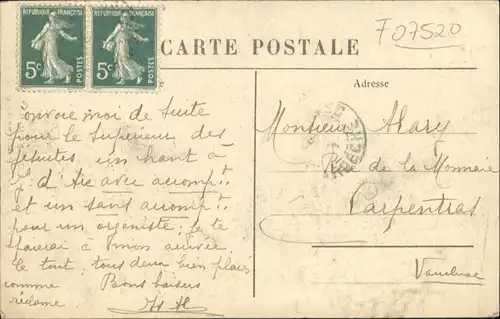 RÉPUBLIQUE FRANÇAISE RÉPUBLIQUE FRANÇAISE
5c POSTES 5c POSTES
CARTE POSTALE
F07520
Adresse
Envoie moi de suite
pour le Supérieur des
jésuites un chant à
d' Are avec accompt.
et un sans accompt.
pour un organiste; je te
paierai à mon arrivée
le tout; tous deux bien plaisir
comme Bons baisers
réclame
Monsieur Alary
Rue de la Monnaie
Carpentras
Vaucluse